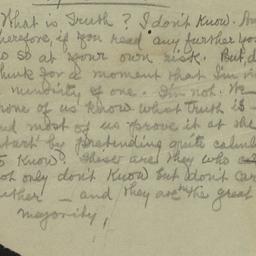 What is Truth? I don't know. An
herefore, if you read any further you
o so at your own risk. But, d
hink for a moment that I'm i
minority of one. I'm not. We
none of us know what truth is
nd most of us prove it at the
tart by pretending quite calml
o know? These are they who
ot only don't know but don't car
ither — and they are the great
majority,